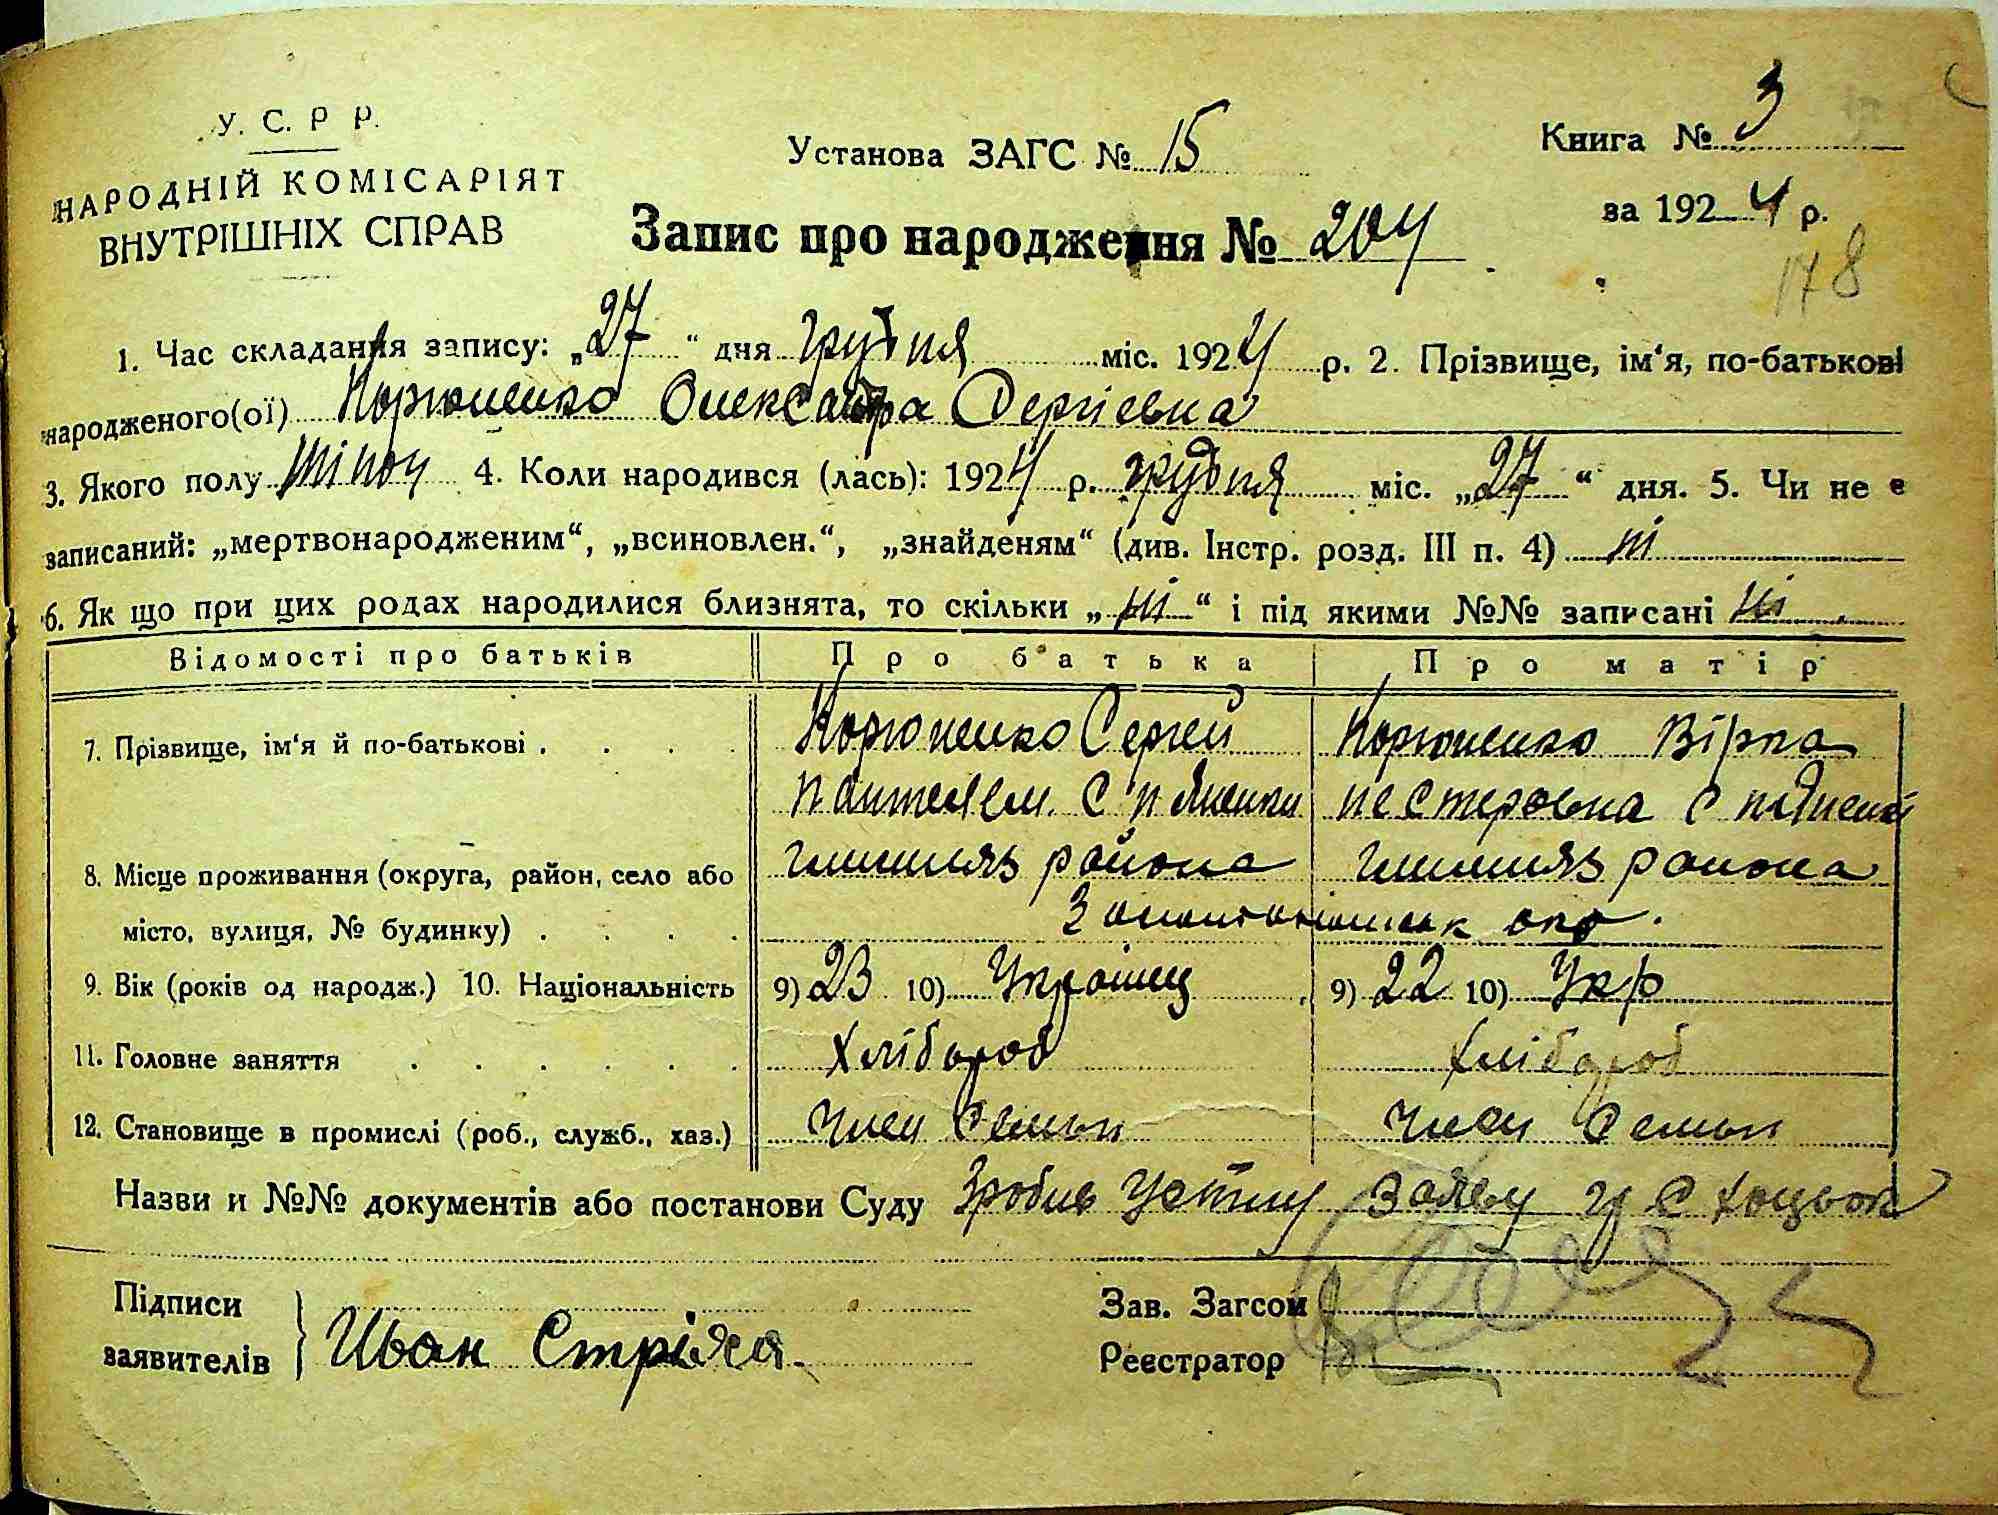 У. С. Р Р.
НАРОДНІЙ КОМІСАРІЯТ
ВНУТРІШНІХ СПРАВ
Установа ЗАГС № 15
Книга № 3
за 1924 р.
Запис про народження № 204
178
1. Час складання запису: „27“ дня грудня міс. 1924 р. 2. Прізвище, ім‘я, по-батькові
народженого(ої) Корюненко Олександра Сергіевна
3. Якого полу жіноч 4. Коли народився (лась): 1924 р. грудня міс. „27“ дня. 5. Чи не е
записаний: „мертвонародженим“, „всиновлен.“, „знайденям“ (див. Інстр. розд. III п. 4) ні
6. Як що при цих родах народилися близнята, то скільки „ні“ і під якими №№ записані ні
Відомості про батьків Про батька Про матір
7. Прізвище, ім‘я й по-батькові . . . . Корюненко Сергей Корюненко Вірка
Пантелем. С нестеровна С
8. Місце проживання (округа, район, село або района района
місто, вулиця, № будинку) . . . .
9. Вік (років од народж.) 10. Національність 9) 23 10) Украінец 9) 22 10) Укр
11. Головне заняття . . . . . . Хлібороб Хлібороб
12. Становище в промислі (роб., служб., хаз.) Член Семьи Член Семьи
Назви и №№ документів або постанови Суду Зробив Устну Заяву
Підписи
заявителів Иван Стріха
Зав. Загсом
Реєстратор